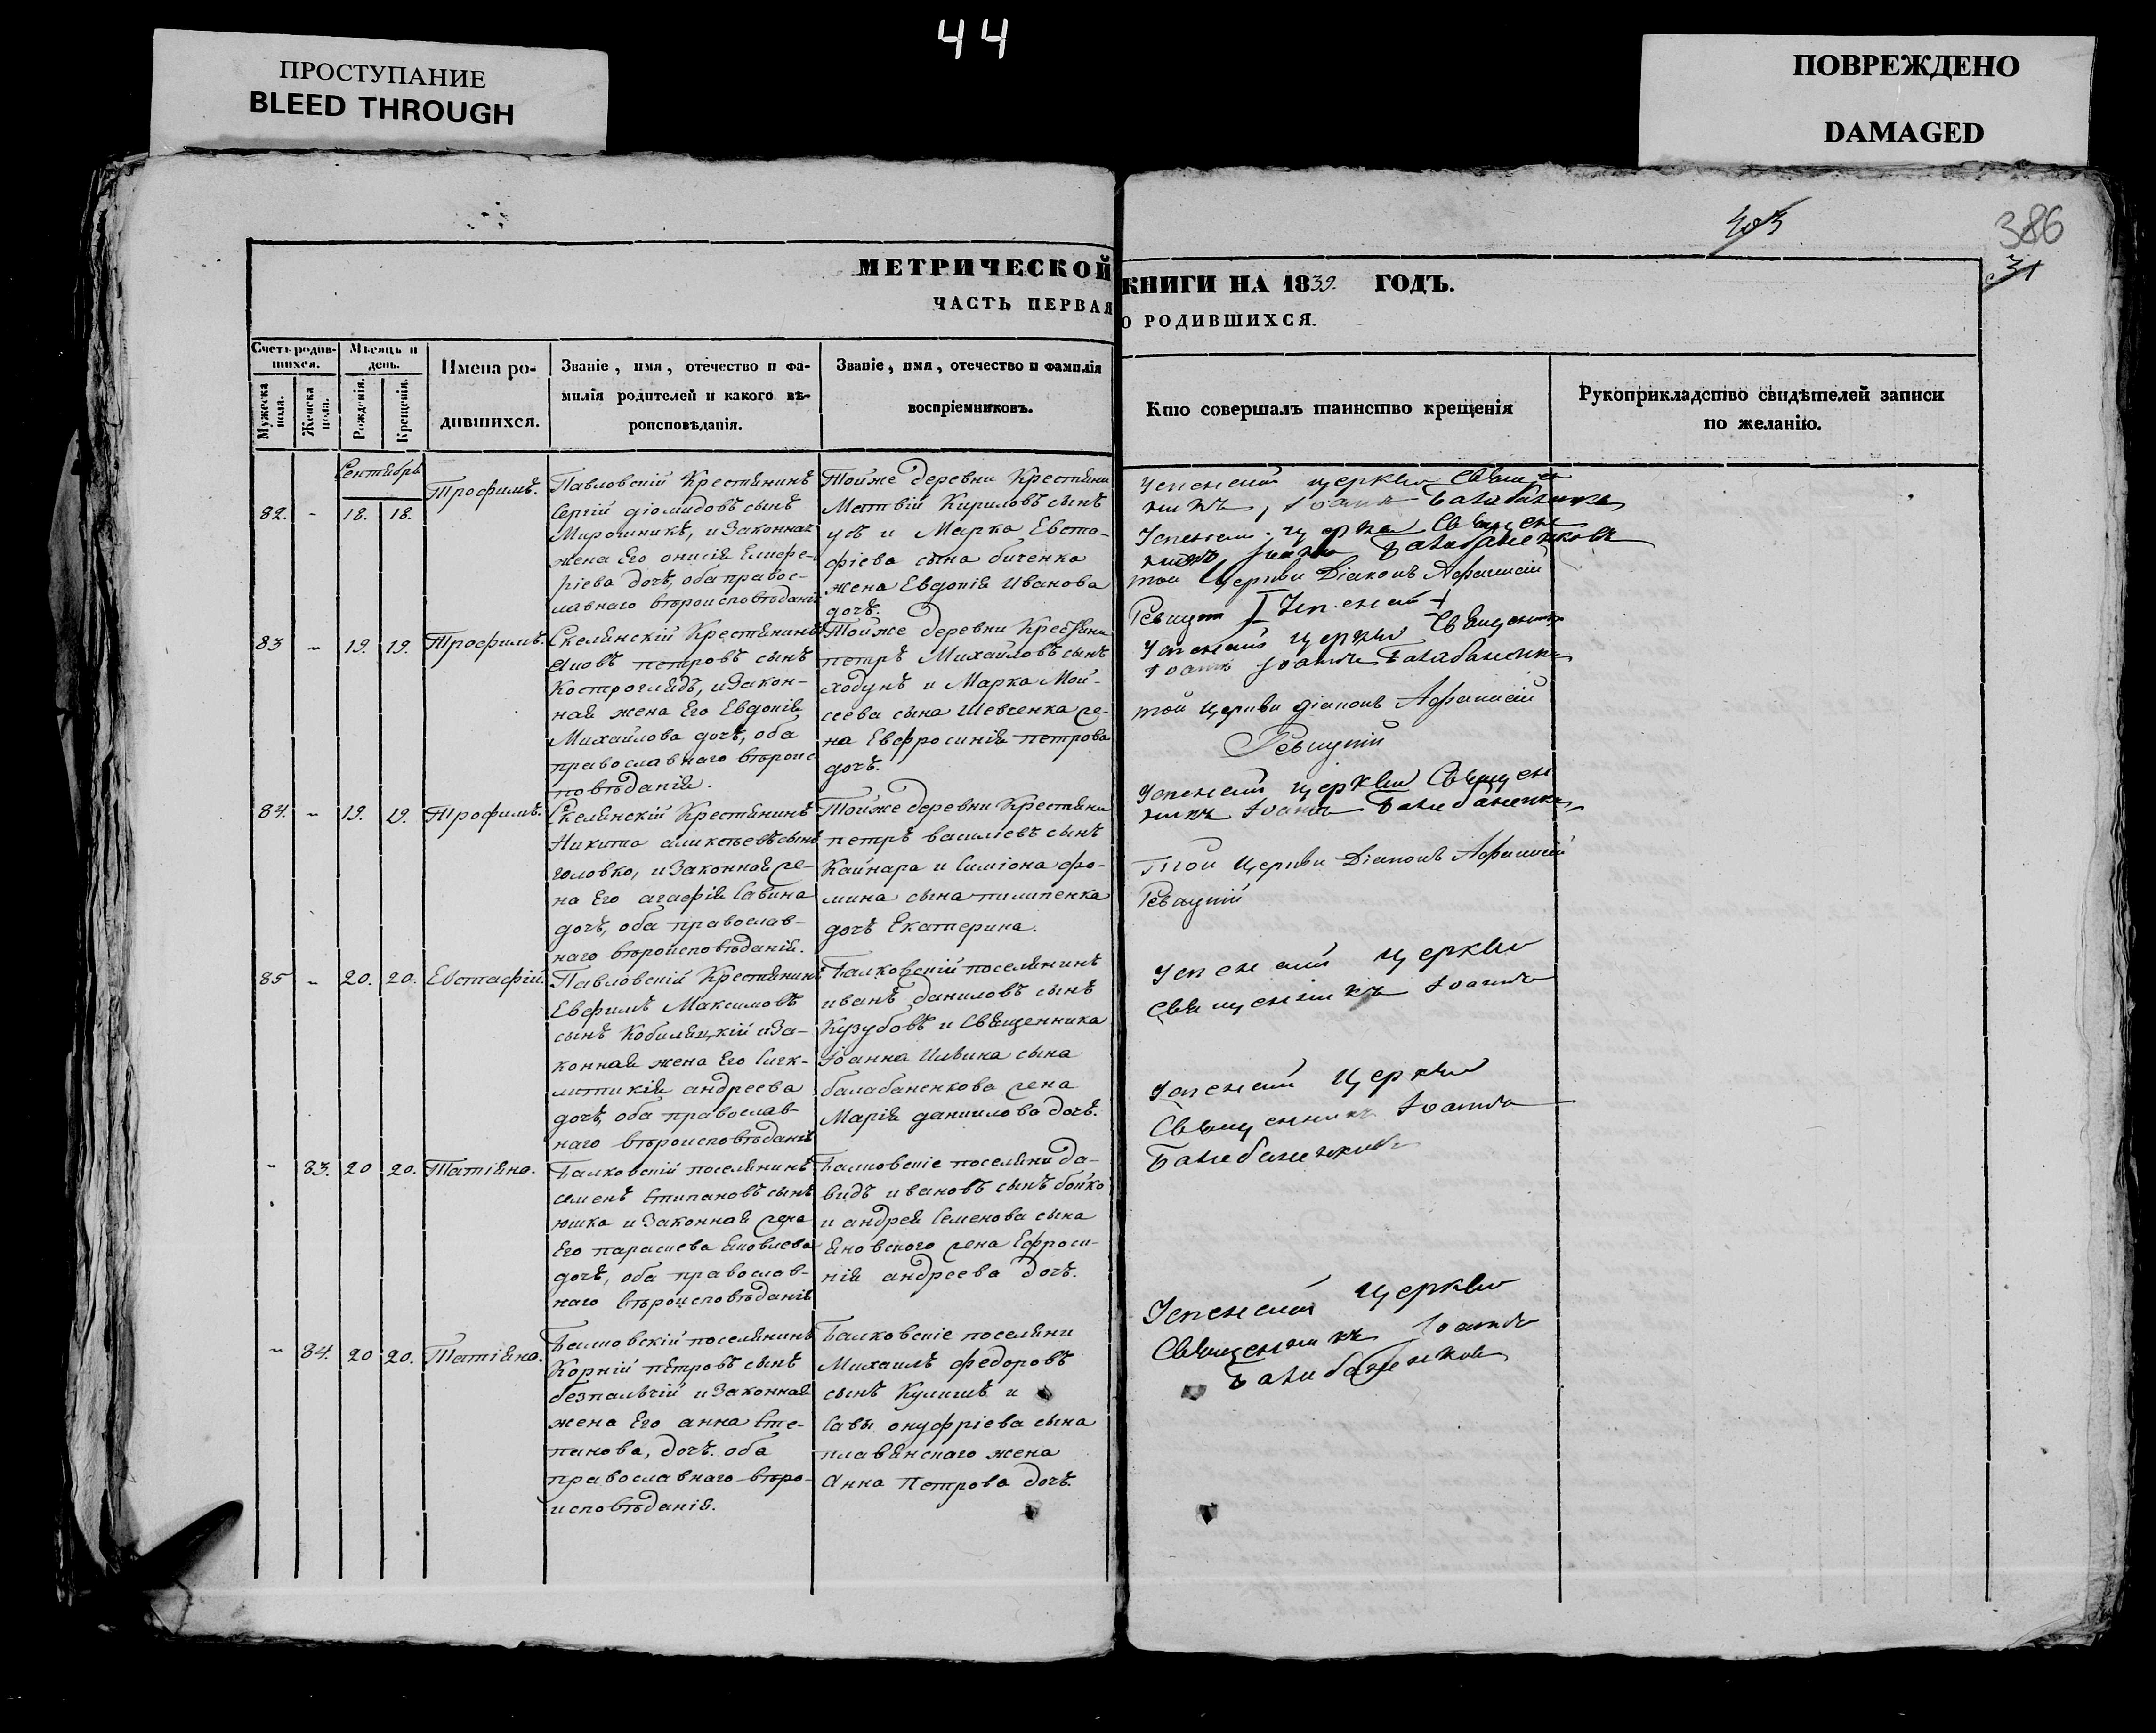 44
ПРОСТУПАНИЕ
BLEED THROUGH
ПОВРЕЖДЕНО
DAMAGED
386
31
МЕТРИЧЕСКОЙ КНИГИ НА 1839. ГОДЪ.
ЧАСТЬ ПЕРВАЯ О РОДИВШИХСЯ.
Счетъ родив-
шихся.
Мужеска
пола.
Женска
пола.
Мѣсяцъ и
день.
Рожденія.
Крещенія.
Имена ро-
дившихся.
Званіе, имя, отечество и фа-
милія родителей и какого вѣ-
роисповѣданія.
Званіе, имя, отечество и фамилія
воспріемниковъ.
Кто совершалъ таинство крещенія
Рукоприкладство свидѣтелей записи
по желанію.
Сентябрь
82. - 18. 18. Трофимъ.
Павловскій Крестянинъ
Сергій діомидовъ сынъ
Мирошникъ, и Законная
жена Его онисія
дочъ, оба правос-
лавнаго вѣроисповѣданія
Тойже деревни Крестяни
Матвій Кириловъ сынъ
усъ и Марка Евста-
фіева сына биченка
жена Евдокія Иванова
дочъ.
Успенской церкви Священ
никъ, Іоаннъ Балабаненко
той Церкви Діаконъ Афанасій
83 - 19. 19. Трофимъ.
Скелянскій Крестянинъ
Яковъ петровъ сынъ
Костроглядъ, и Закон-
ная жена Его Евдокія
Михайлова дочъ, оба
православнаго вѣроис
повѣданія.
Тойже деревни Крестяни
петръ Михайловъ сынъ
ходунъ и Марка Мой-
сеева сына Шевченка же-
на Евфросинія петрова
дочъ.
Успенской церкви Священникъ
Іоаннъ Балабаненко
той Церкви діаконъ Афанасій
84. - 19. 19. Трофимъ.
Скелянскій Крестянинъ
Никита аликсѣевъ сынъ
головко, и Законная же-
на Его агафія Савина
дочъ, оба православ-
наго вѣроисповѣданія.
Тойже деревни Крестяни
петръ василіевъ сынъ
Кайнара и Симіона фо-
мина сына пилипенка
дочъ Екатерина.
Успенской церкви Священ
никъ Іоаннъ Балабаненко
Той Церкви Діаконъ Афанасій
85 - 20. 20. Евстафій.
Павловскій Крестянинъ
Евфимъ Максимовъ
сынъ Кобиляцкій и За-
конная жена Его Синк-
литикія андреева
дочъ, оба православ-
наго вѣроисповѣданія
Балковскій поселянинъ
иванъ даниловъ сынъ
Кузубовъ и Священника
Іоанна Ильина сына
балабаненкова жена
Марія даниилова дочъ.
Успенской церкви
Священникъ Іоаннъ
- 83. 20 20. Татіяна.
Балковскій поселянинъ
семенъ Стипановъ сынъ
юшка и Законная жена
Его параскева Яковлева
дочъ, оба православ-
наго вѣроисповѣданія
Балковскіе поселяни да-
видъ ивановъ сынъ бойко
и андрея Семенова сына
Яновского жена Ефроси-
нія андреева дочъ.
Успенской Церкви
Священникъ Іоаннъ
Балабаненковъ
- 84. 20 20. Татіяна.
Балковскій поселянинъ
Корній петровъ сынъ
безпальчій и Законная
жена Его анна Сте-
панова, дочъ. оба
православнаго вѣро-
исповѣданія.
Балковскіе поселяни
Михаилъ федоровъ
сынъ Кулишъ и
Савы онуфріева сына
плавянскаго жена
Анна Петрова дочъ.
Успенской Церкви
Священникъ Іоаннъ
Балабаненковъ